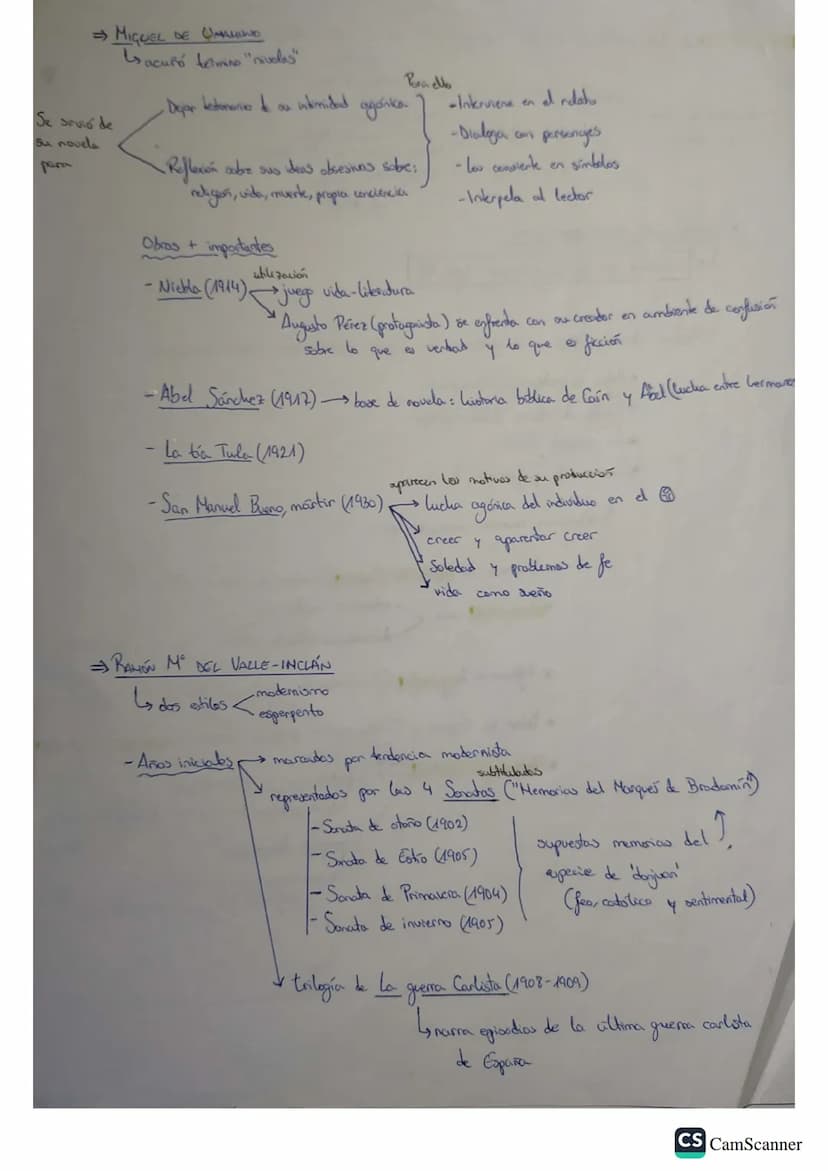 ⇒ MIGUEL DE UNAMUNO
↳ acuñó término "nivolas"
Se sirvió de su novela para
Dejar testimonio de su intimidad agónica
Reflexión sobre sus ideas obsesivas sobre:
religión, vida, muerte, propia conciencia
Para ello
- Interviene en el relato
- Dialoga con personajes
- Los convierte en símbolos
- Interpela al lector
Obras + importantes
- Niebla (1914) → utilización juego vida-literatura
Augusto Pérez (protagonista) se enfrenta con su creador en ambiente de confusión
sobre lo que es verdad y lo que es ficción
- Abel Sánchez (1917) → base de novela: historia bíblica de Caín y Abel (lucha entre hermanos
- La tía Tula (1921)
aparecen los motivos de su producción
- San Manuel Bueno, mártir (1930) → lucha agónica del individuo en el
creer y aparentar creer
Soledad y problemas de fe
vida como sueño
⇒ RAMÓN Mª DEL VALLE-INCLÁN
↳ dos estilos
modernismo
esperpento
- Años iniciales → marcados por tendencia modernista
representados por las 4 Sonatas subtituladas ("Memorias del Marqués de Bradomín")
- Sonata de otoño (1902)
- Sonata de Estío (1905)
- Sonata de Primavera (1904)
- Sonata de invierno (1905)
supuestas memorias del ↑,
especie de 'donjuan'
(feo, católico y sentimental)
trilogía de La guerra Carlista (1908-1909)
↳ narra episodios de la última guerra carlista
de España
CS CamScanner